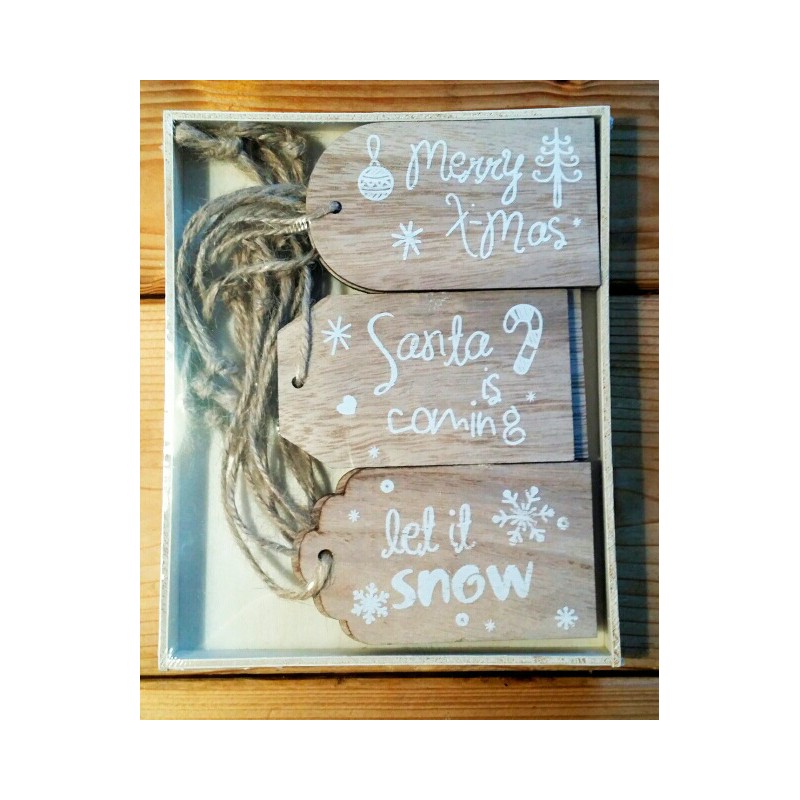 Merry
X-Mas
Santa
is
coming
let it
snow